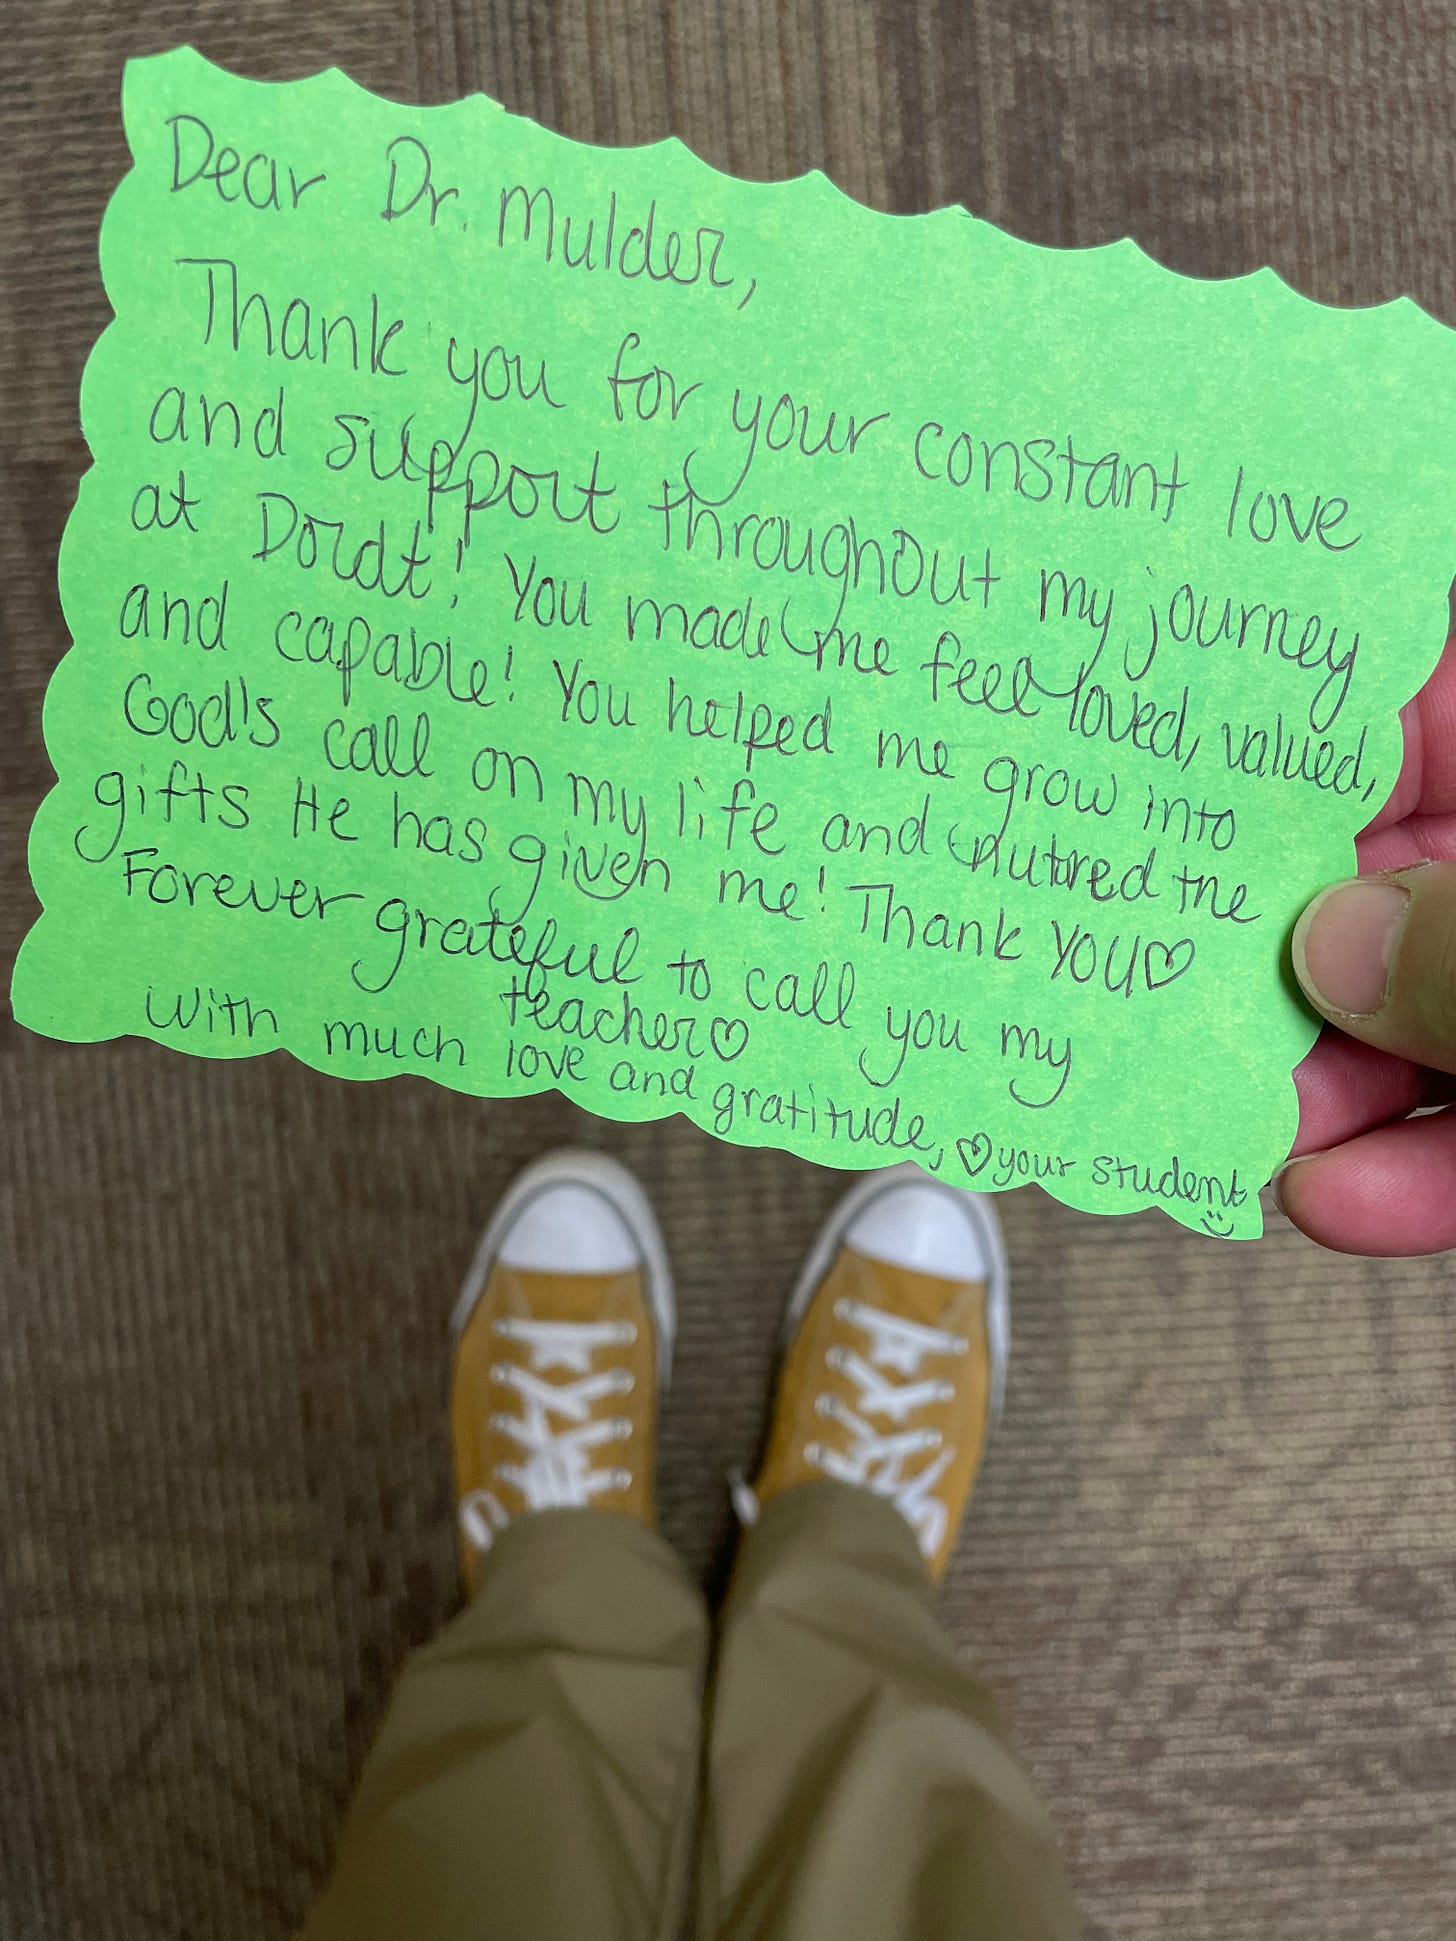 Dear Dr. Mulder,
Thank you for your constant love
and support throughout my journey
at Dordt! You made me feel loved, valued,
and capable! You helped me grow into
God's call on my life and nutured the
gifts He has given me! Thank YOU♡
Forever grateful to call you my
teacher♡
With much love and gratitude, ♡your student